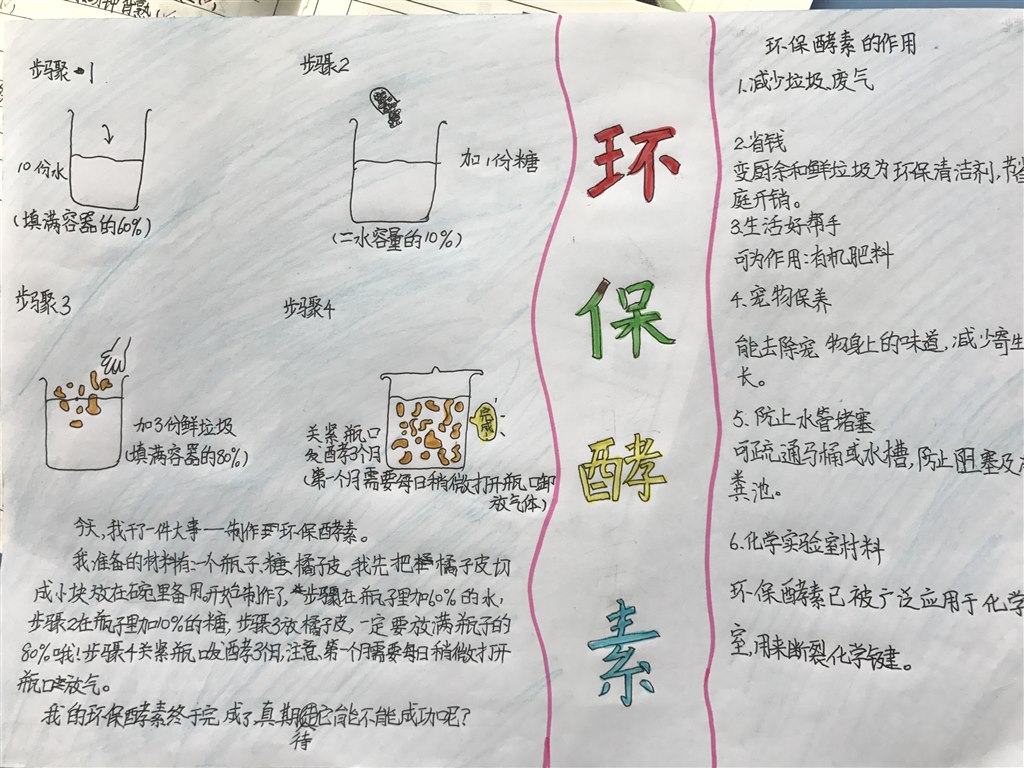 步骤1
10份水
(填满容器的60%)
步骤2
加1份糖
(二水容量的10%)
步骤3
加3份鲜垃圾
(填满容器的80%)
步骤4
完成!
关紧瓶口
发酵3个月
(第一个月需要每日稍微打开瓶口卸
放气体)
今天,我干了一件大事——制作环保酵素。
我准备的材料有:一个瓶子、糖、橘子皮。我先把橘子皮切
成小块放在碗里备用,开始制作了,步骤1在瓶子里加60%的水,
步骤2在瓶子里加10%的糖,步骤3放橘子皮,一定要放满瓶子的
80%哦!步骤4关紧瓶口发酵3个月,注意,第一个月需要每日稍微打开
瓶口放气。
我的环保酵素终于完成了,真期待它能不能成功呢?
环
保
酵
素
环保酵素的作用
1.减少垃圾、废气
2.省钱
变厨余和鲜垃圾为环保清洁剂,节省
庭开销。
3.生活好帮手
可为作用:有机肥料
4.宠物保养
能去除宠物身上的味道,减少寄生
长。
5.防止水管堵塞
可疏通马桶或水槽,防止阻塞及
粪池。
6.化学实验室材料
环保酵素已被广泛应用于化学
室,用来断裂化学键。